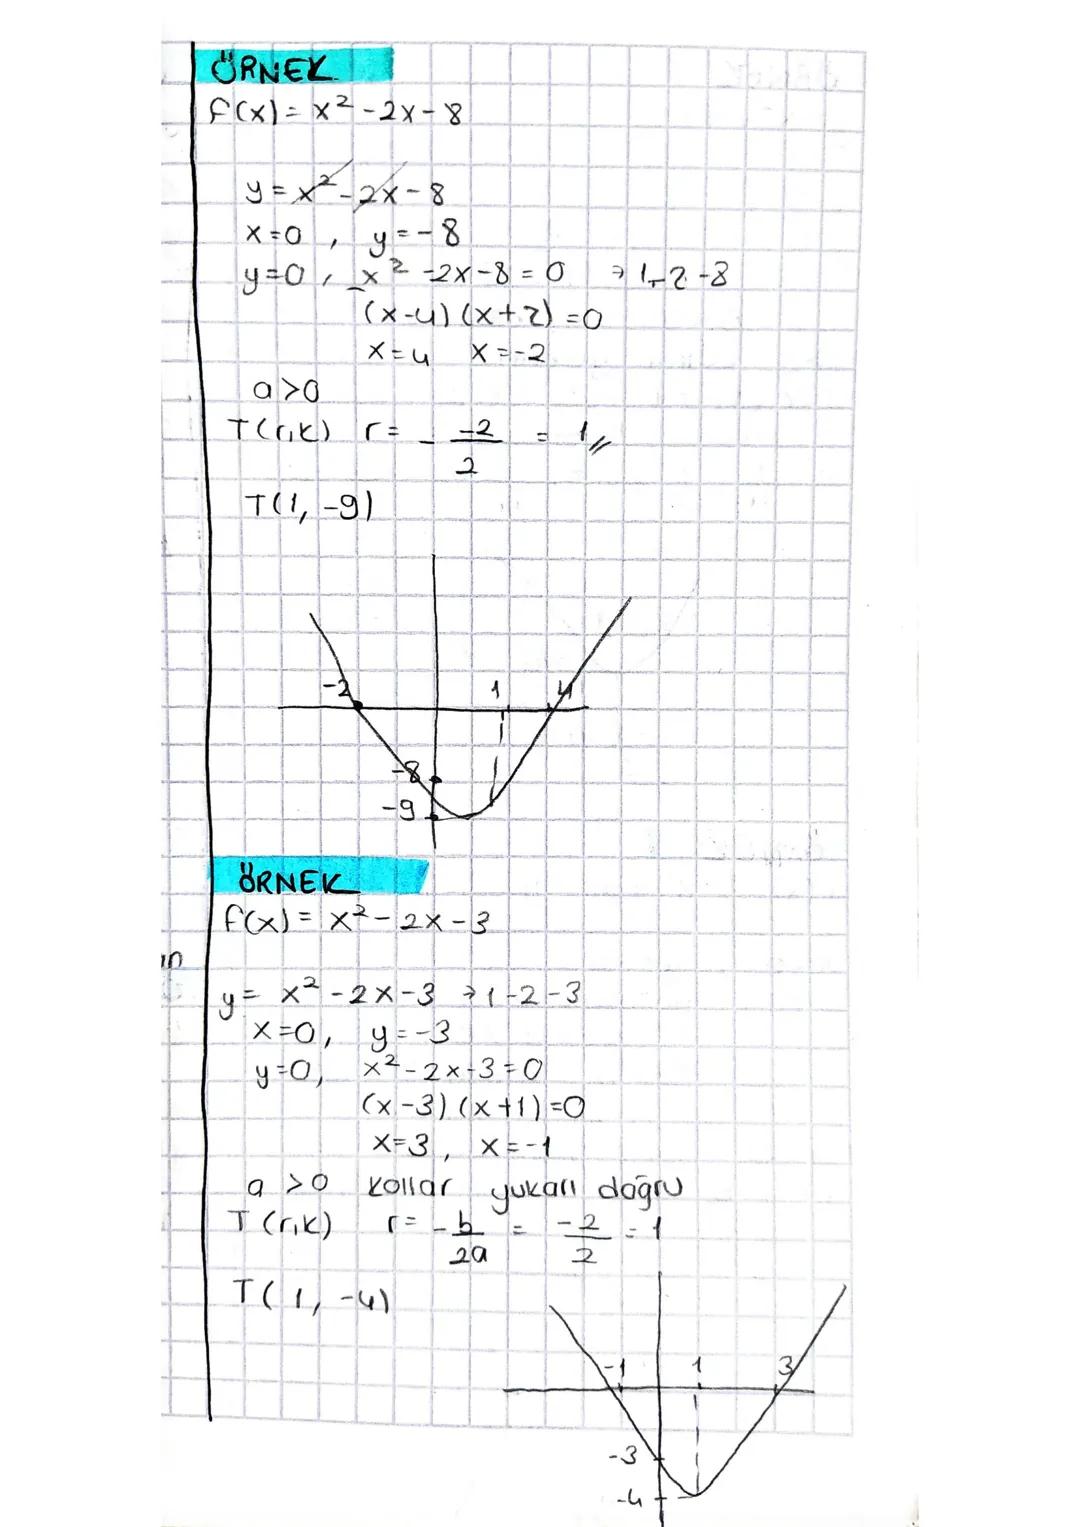 ÖRNEK
f(x) = x² - 2x - 8
y = x² - 2x - 8
x=0, y = -8
y=0, x² - 2x - 8 = 0 → 1 -2 -8
(x-4) (x+2) = 0
x=4 x=-2
a>0
T(r,k) r = - -2/2 = 1//
T(1, -9)
-2 1 4
-8
-9
ÖRNEK
f(x) = x² - 2x - 3
y = x² - 2x - 3 → 1 -2 -3
x=0, y = -3
y=0, x² - 2x - 3 = 0
(x-3) (x+1) = 0
x=3, x=-1
a >0 kollar yukarı doğru
T (r,k) r = - b/2a = -2/2 = 1
T( 1, -4)
-1 1 3
-3
-4